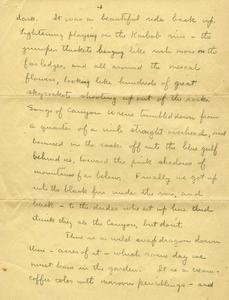 4
dark. It was a beautiful ride back up
lightening playing on the Kaibab rim - the
juniper thickets hanging like
far ledges, and all around the mescal
flowers, looking like hundreds of great
skyrockets shooting up out of the rocks.
Songs of Canyon Wrens tumbled down from
a quarter of a mile straight overhead, and
bounced on the rocks off into the blue gulf
behind us, toward the pink shadows of
mountains far below. Finally we got up
into the black pine under the rim, and
back - to the dudes who sit up here and
think they see the Canyon, but don't.
There is a wild snapdragon down
there - acres of it - which some day we
must have in the garden. It is a cream-
coffee color with maroon pencillings - and